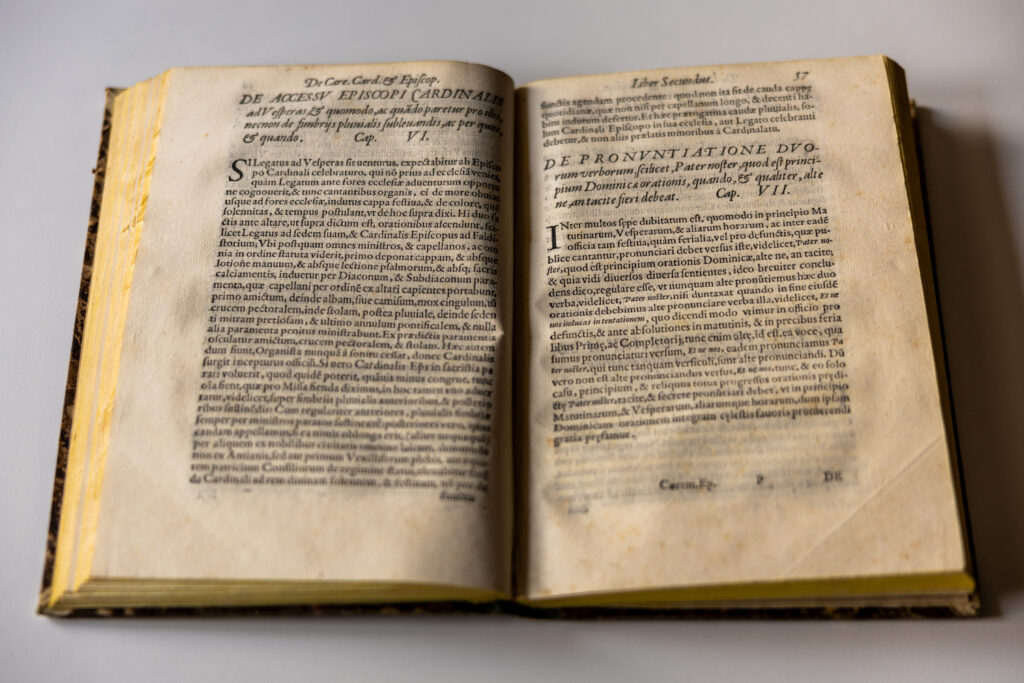 De Cere. Card. & Episcop.
DE ACCESSV EPISCOPI CARDINALIS
ad Vesperas, & quomodo, ac quādo paretur pro illo,
necnon de fimbrijs pluvialis subleuandis, ac per quos,
& quando. Cap. VI.
SI Legatus ad Vesperas sit uenturus, expectabitur ab Episco
po Cardinali celebraturo, qui nō prius ad ecclesiā veniet,
quàm Legatum ante fores ecclesiæ aduenturum opportu
ne cognouerit, & tunc cantantibus organis, ei de more obuiat
usque ad fores ecclesiæ, indutus cappa festiua, & de colore, quē
solennitas, & tempus postulant, vt de hoc supra dixi. Hi duo fa
ctis ante altare, ut supra dictum est, orationibus ascendunt, sci
licet Legatus ad sedem suam, & Cardinalis Episcopus ad Faldi
storium, Vbi postquam omnes ministros, & capellanos, ac om
nia in ordine statuta viderit, primo deponat cappam, & absq;
lotione manuum, & absque lectione psalmorum, & absq; sacris
calciamentis, induetur per Diaconum, & Subdiaconum para-
menta, quæ capellani per ordinē ex altari capientes portabunt,
primo amictum, deinde albam, siue camisum, mox cingulum, tū
crucem pectoralem, inde stolam, postea pluuiale, deinde seden
ti mitram pretiosam, & ultimo annulum pontificalem, & nulla
alia paramenta penitus ministrabunt. Ex prædictis paramentis
osculatur amictum, crucem pectoralem, & stolam. Hæc autem
dum fiunt, Organista nunquā à sonitu cessat, donec Cardinalis
surgit incepturus officiū. Si uero Cardinalis Eps in sacristia pa
rari voluerit, quod quidē poterit, quāuis minus congrue, tunc
ola fient, quæ pro Missa fienda diximus, in hoc tamen vno aduer
tatur, videlicet, super fimbrijs pluuialis anterioribus, & posterio
ribus sustinēdis: Cum regulariter anteriores, pluuialis fimbriæ
semper per ministros paratos sustineātur, posteriores vero, quas
caudam appellamus, si ea nimis oblonga erit,
per aliquem ex nobilibus ciuitatis omnino laicum,
non ex Antianis, sed aut primum Vexilliferum plebis, aut
rem patricium Consiliorum de regimine status,
de Cardinali ad rem diuinam solennem, & festiuam,
Liber Secundus. 57
functis agendam procedente: quod non ita fit de cauda cappæ
quotidianæ, quæ non nisi per capellanum longo, & decenti ha-
bitu indutum defertur. Et hæc prærogatiua caudæ pluuialis, so-
lum Cardinali Episcopo in sua ecclesia, aut Legato celebranti
debetur, & non alijs prælatis minoribus à Cardinalatu.
DE PRONVNTIATIONE DVO-
rum verborum, scilicet, Pater noster, quod est princi-
pium Dominicæ orationis, quando, & qualiter, alte
ne, an tacite fieri debeat. Cap. VII.
INter multos sępe dubitatum est, quomodo in principio Ma
tutinarum, Vesperarum, & aliarum horarum, ac inter eadē
officia tam festiua, quàm ferialia, vel pro defunctis, quæ pu-
blice cantantur, pronunciari debet versus iste, videlicet, Pater no-
ster, quod est principium orationis Dominicæ, alte ne, an tacite;
& quia vidi diuersos diuersa sentientes, ideo breuiter conclu
dens dico, regulare esse, vt nunquam alte pronūtiemus hæc duo
verba, videlicet, Pater noster, nisi duntaxat quando in fine eiusdē
orationis debebimus alte pronunciare verba illa, videlicet, Et ne
nos inducas in tentationem, quo dicendi modo vtimur in officio pro
defunctis, & ante absolutiones in matutinis, & in precibus feria
libus Primę, ac Completorij; tunc enim alte, id est, ea voce, qua
sumus pronunciaturi versum, Et ne nos, eadem pronunciamus Pa
ter noster, qui tunc tanquam versiculi, sunt alte pronunciandi. Dū
vero non est alte pronunciandus versus, Et ne nos, tunc, & eo solo
casu, principium, & reliquus totus progressus orationis prędi-
ctę Pater noster, tacite, & secrete pronunciari debet, vt in principio
Matutinarum, & Vesperarum, aliarumque horarum, dum ipsam
Dominicam orationem integram cęlestis fauoris promerendi
gratia pręfamur.
Cærem. Ep. P DE